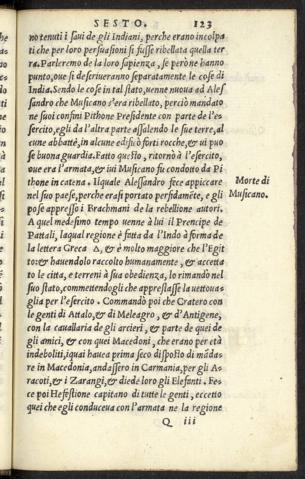 SESTO. 123
no tenuti i saui de gli Indiani, perche erano incolpa
ti che per loro persuasioni si fusse ribellata quella ter
ra. Parleremo de la loro sapienza, se però ne hanno
punto, oue si descriueranno separatamente le cose di
India. Sendo le cose in tal stato, uenne nuoua ad Ales
sandro che Musicano s'era ribellato, perciò mandato
ne suoi confini Pithone Presidente con parte de l'es-
sercito, egli da l'altra parte assalendo le sue terre, al
cune abbattè, in alcune edificò forti rocche, & ui puo
se buona guardia. Fatto questo, ritornò a l'esercito,
oue era l'armata, & iui Musicano fu condotto da Pi
thone in catena. Ilquale Alessandro fece appiccare
nel suo paese, perche era si portato perfidamēte, e gli
pose appresso i Brachmani de la rebellione autori.
Morte di
Musicano.
A quel medesimo tempo uenne à lui il Prencipe de
Pattali, laqual regione è fatta da l'Indo à forma de
la lettera Greca Δ, & è molto maggiore che l'Egit
to: & hauendolo raccolto humanamente, & accetta
to le citta, e terreni à sua obedienza, lo rimandò nel
suo stato, commettendogli che apprestasse la uettoua-
glia per l'esercito. Commandò poi che Cratero con
le genti di Attalo, & di Meleagro, & d'Antigene,
con la cauallaria de gli arcieri, & parte de quei de
gli amici, & con quei Macedoni, che erano per età
indeboliti, iquai hauea prima seco disposto di māda-
re in Macedonia, andassero in Carmania, per gli A-
racoti, & i Zarangi, & diede loro gli Elefanti. Fe-
ce poi Hefestione capitano di tutte le genti, eccetto
quei che egli conduceua con l'armata ne la regione
Q iii